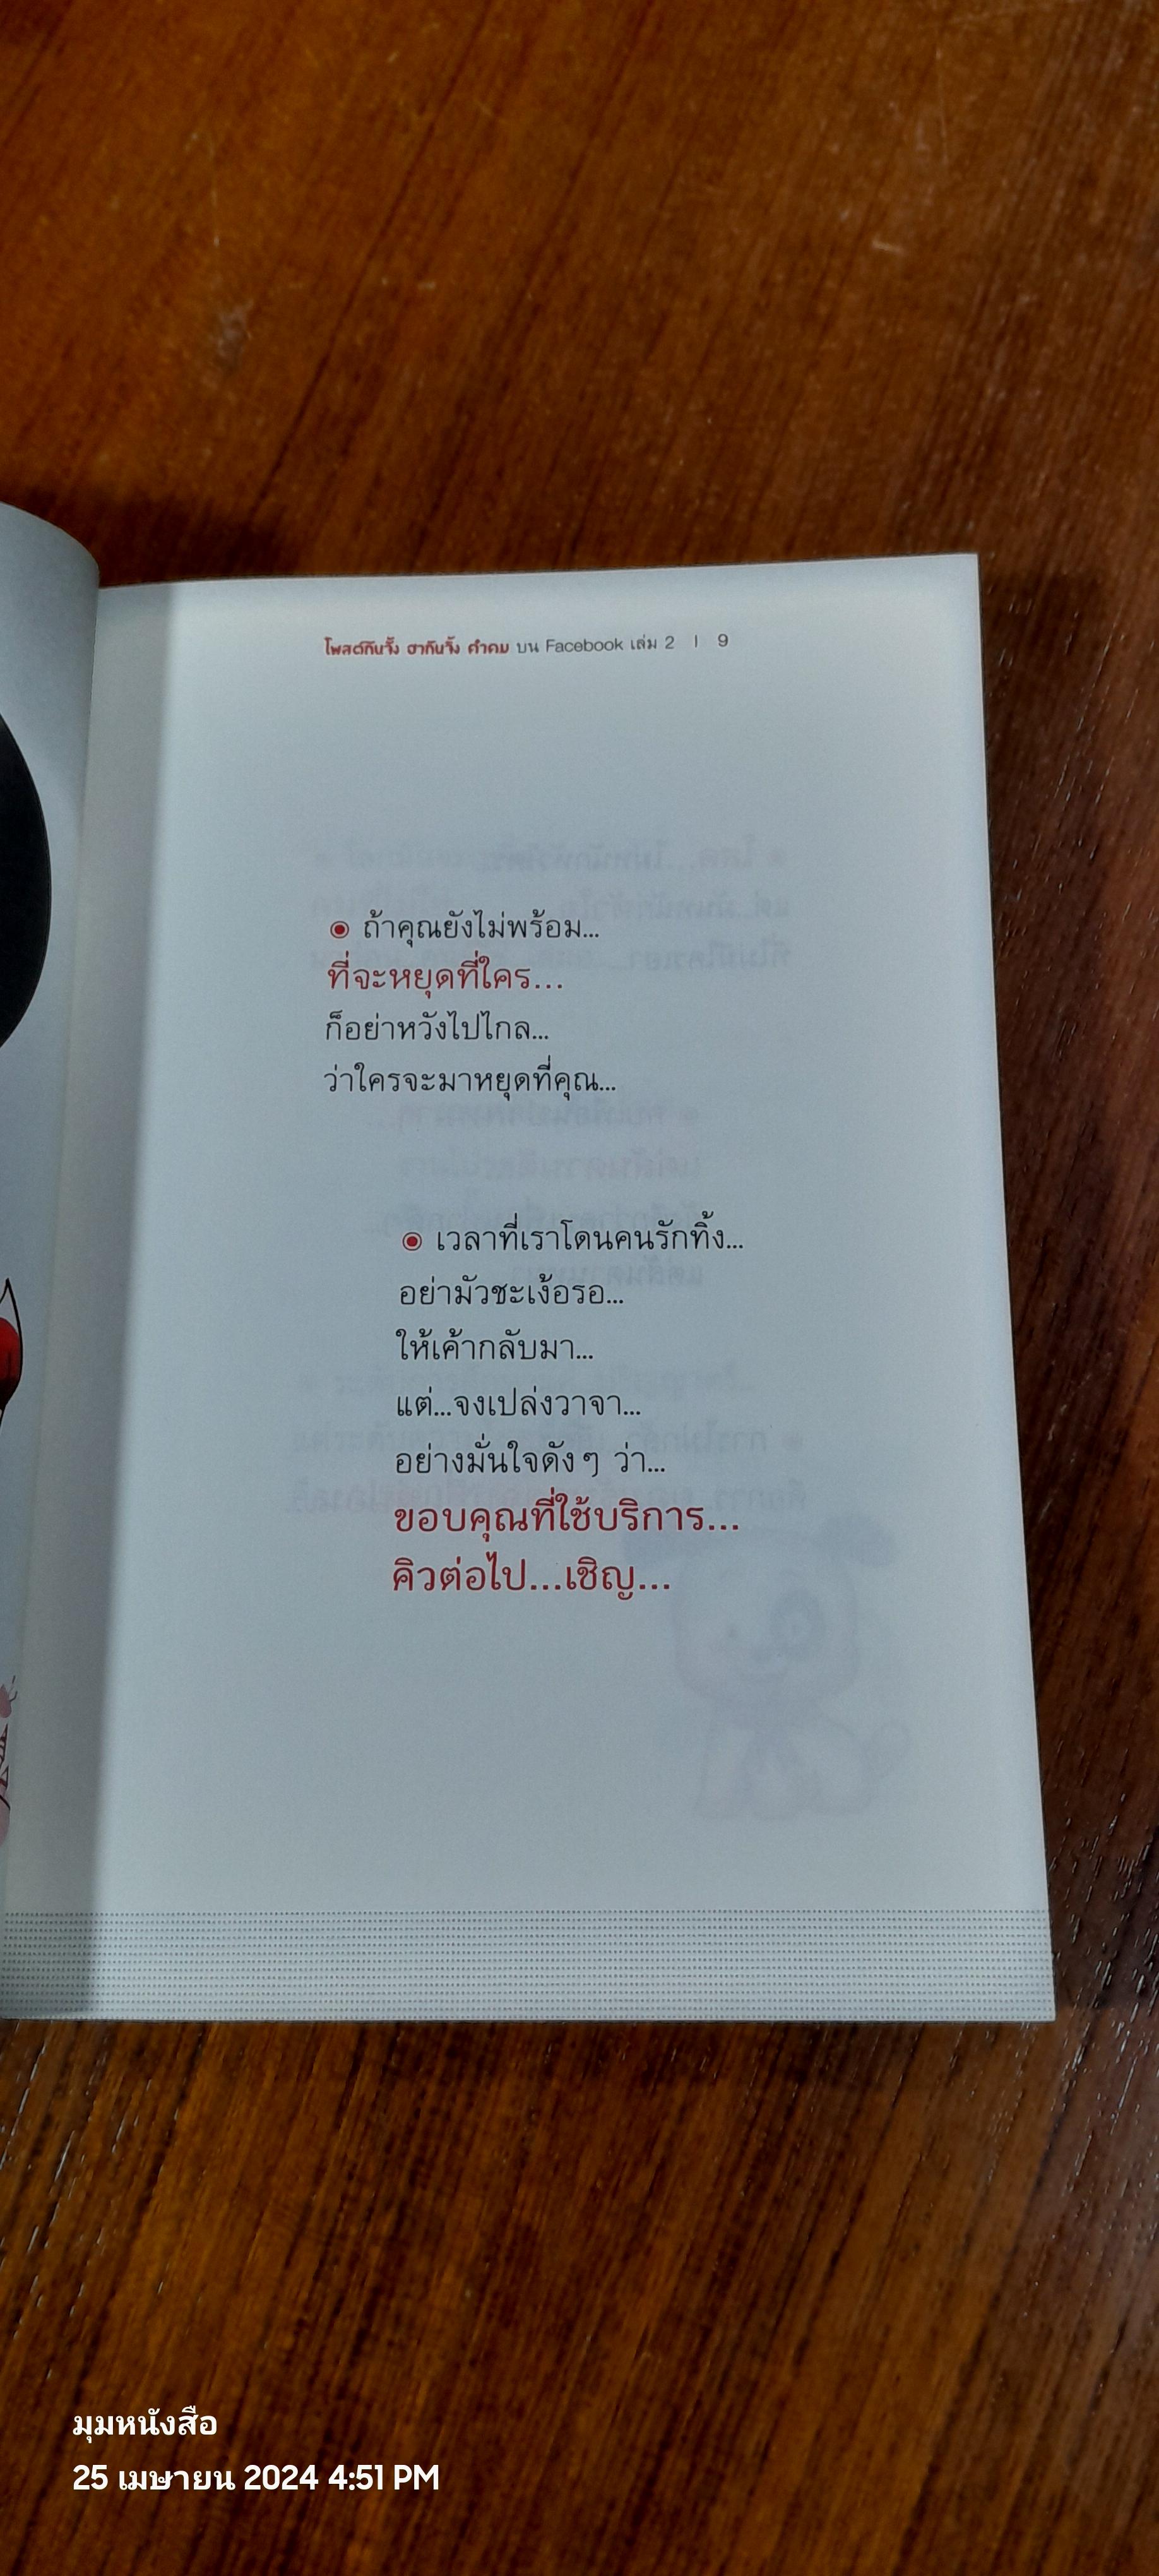 โพสต์กันวั้ง ฮากันวั้ง คำคม บน Facebook เล่ม 2 | 9
ถ้าคุณยังไม่พร้อม...
ที่จะหยุดที่ใคร...
ก็อย่าหวังไปไกล...
ว่าใครจะมาหยุดที่คุณ...
เวลาที่เราโดนคนรักทิ้ง...
อย่ามัวชะเง้อรอ...
ให้เค้ากลับมา...
แต่...จงเปล่งวาจา...
อย่างมั่นใจดังๆ ว่า...
ขอบคุณที่ใช้บริการ...
คิวต่อไป...เชิญ...
มุมหนังสือ
25 เมษายน 2024 4:51 PM